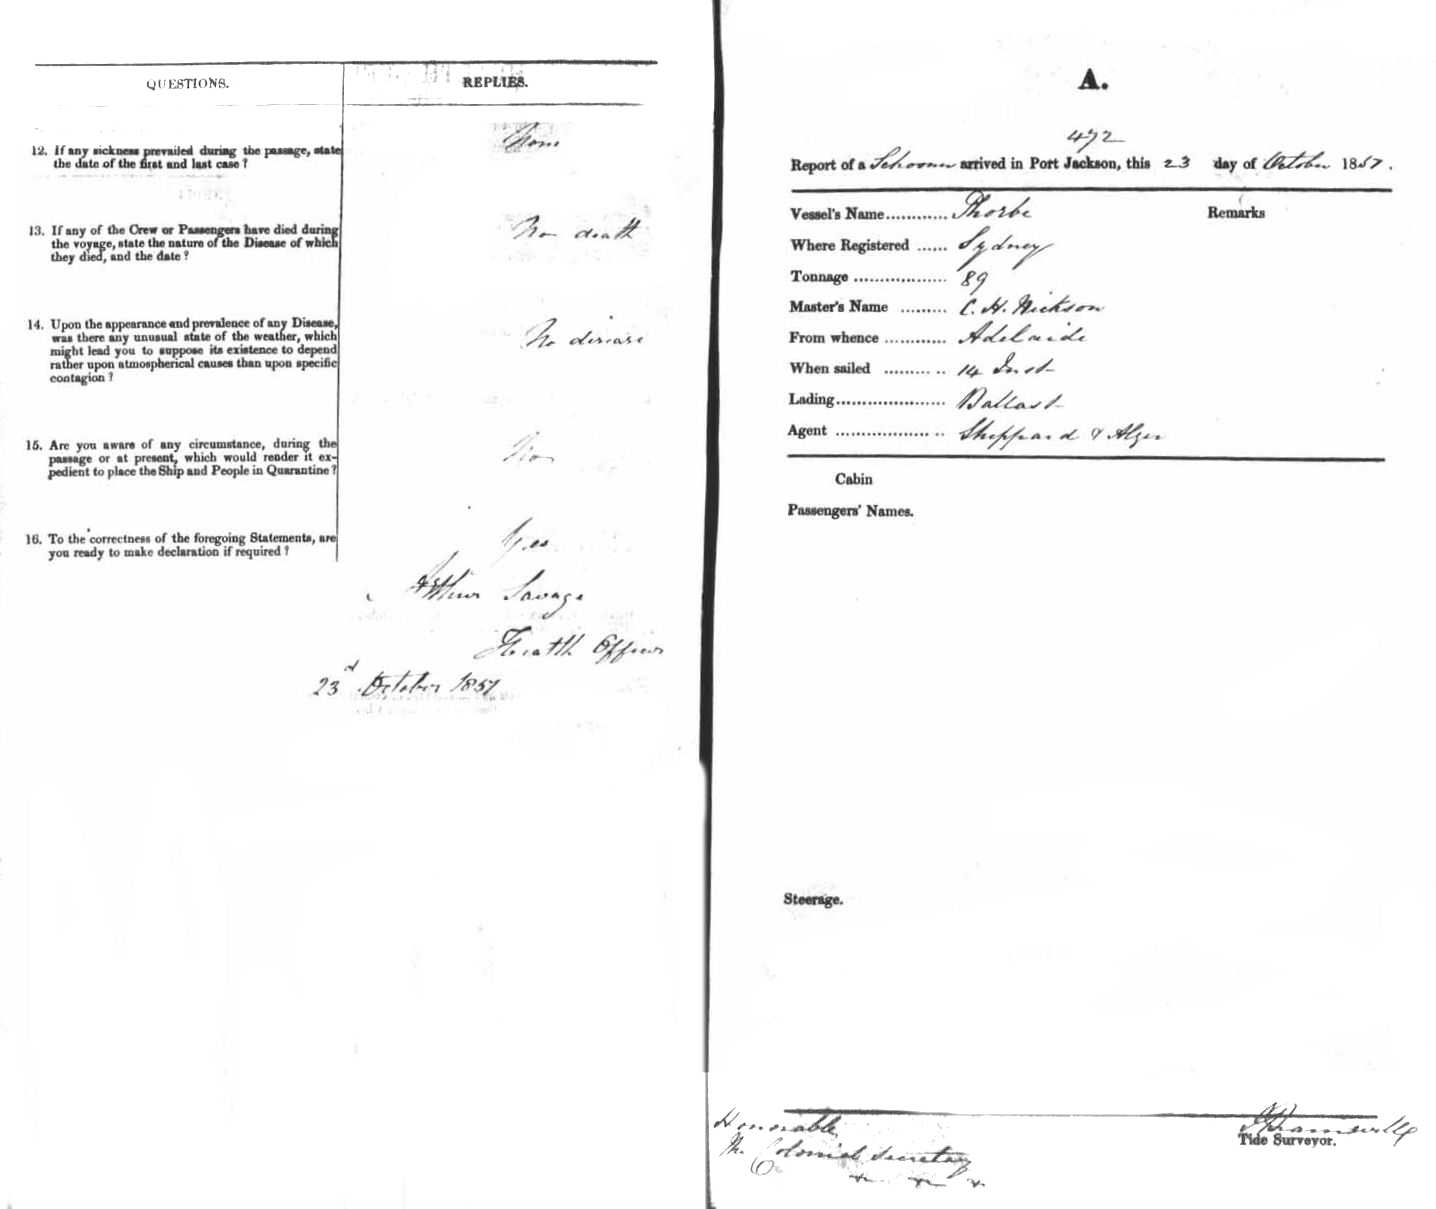 QUESTIONS.
REPLIES.
12. If any sickness prevailed during the passage, state
the date of the first and last case ?
None
13. If any of the Crew or Passengers have died during
the voyage, state the nature of the Disease of which
they died, and the date ?
No death
14. Upon the appearance and prevalence of any Disease,
was there any unusual state of the weather, which
might lead you to suppose its existence to depend
rather upon atmospherical causes than upon specific
contagion ?
No disease
15. Are you aware of any circumstance, during the
passage or at present, which would render it ex-
pedient to place the Ship and People in Quarantine ?
No
16. To the correctness of the foregoing Statements, are
you ready to make declaration if required ?
Yes
Arthur Savage
Health Officer
23d October 1857
A.
472
Report of a Schooner arrived in Port Jackson, this 23 day of October 1857.
Vessel's Name............ Phoebe
Remarks
Where Registered ...... Sydney
Tonnage .................. 89
Master's Name ......... C. H.
From whence ............ Adelaide
When sailed ......... .. 14 Inst
Lading..................... Ballast
Agent .................. .. Sheppard & Alger
Cabin
Passengers' Names.
Steerage.
Honorable
The Colonial Secretary
Tide Surveyor.